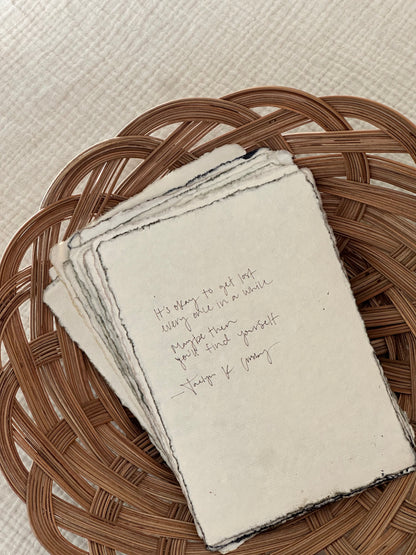 It's okay to get lost
every once in a while
Maybe then
you'll find yourself
— K